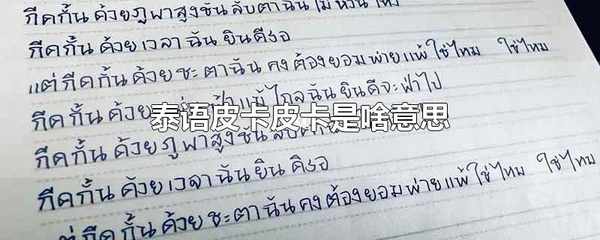 กีดกั้น ด้วยภู พาสูงชัน ลับตาฉัน
กีดกั้น ด้วย เวลา ฉัน ยินดีรอ
แต่ กีดกั้น ด้วย ชะ ตาฉัน คง ต้องยอม พ่ายแพ้ ใช่ไหม ใช่ไหม
กีดกั้น ด้วย ไกล ฉัน ยินดีจะฝ่าไป
泰语皮卡皮卡是啥意思
กีดกั้น ด้วย ภู พาสูงชัน
กีดกั้น ด้วย เวลา ฉัน ยิน ดีรอ
กีดกั้น ด้วย ชะตาฉัน คง ต้องยอม พ่าย แพ้ ใช่ไหม ใช่ไหม